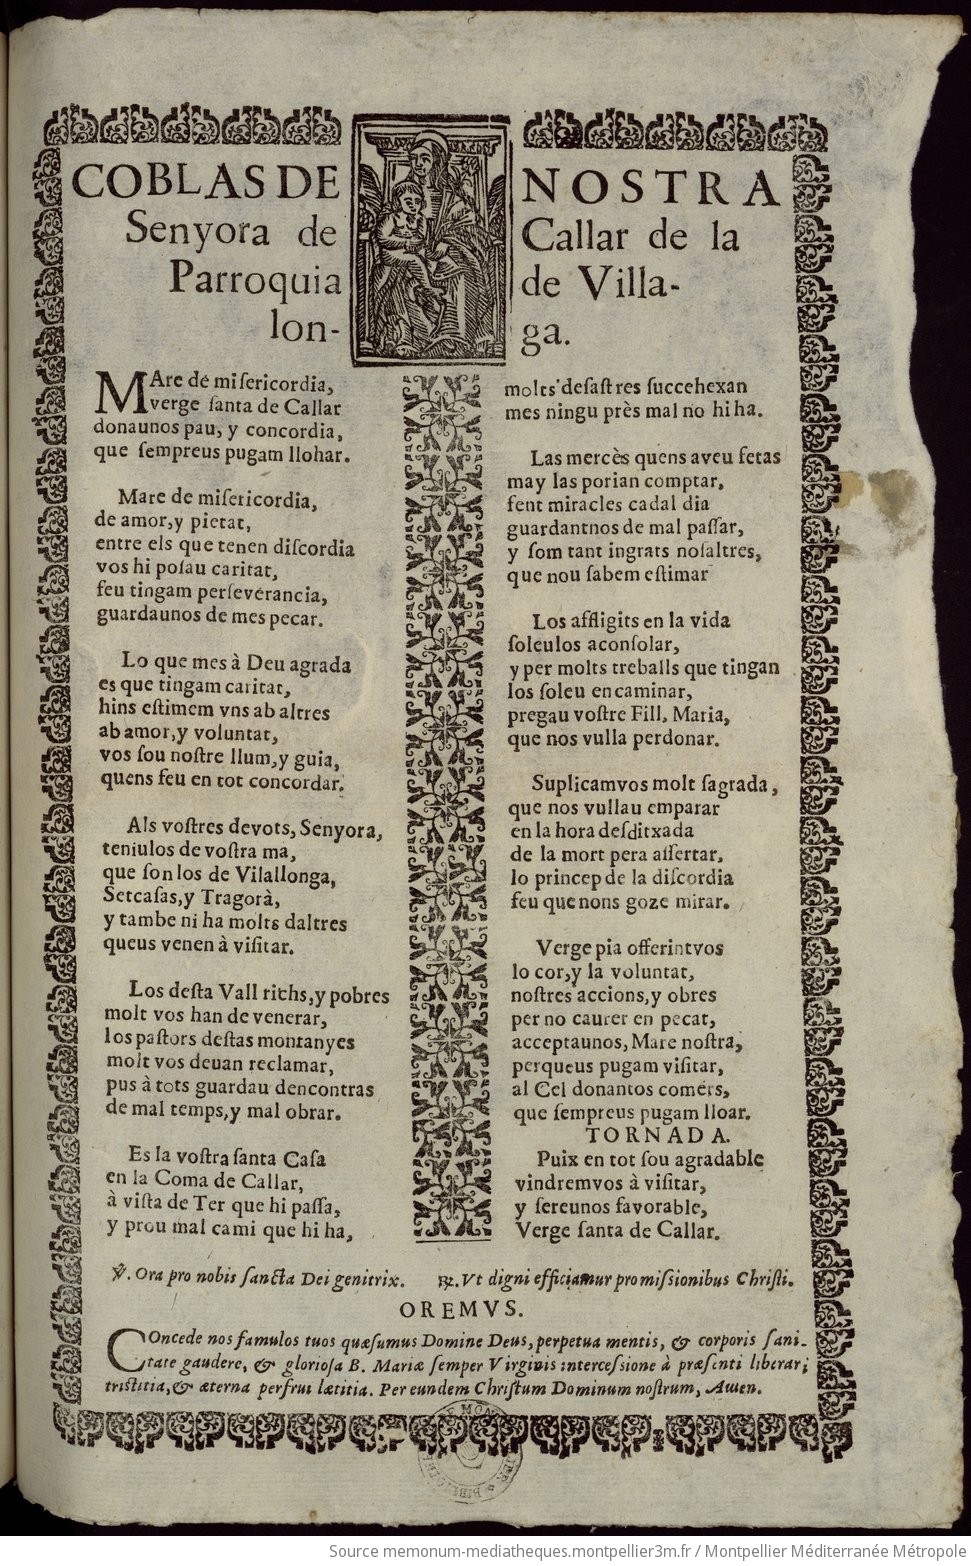 COBLAS DE NOSTRA
Senyora de Callar de la
Parroquia de Villa-
lon- ga.
MAre de misericordia,
verge santa de Callar
donaunos pau, y concordia,
que sempreus pugam llohar.
Mare de misericordia,
de amor, y pietat,
entre els que tenen discordia
vos hi posau caritat,
feu tingam perseverancia,
guardaunos de mes pecar.
Lo que mes à Deu agrada
es que tingam caritat,
hins estimem vns ab altres
ab amor, y voluntat,
vos sou nostre llum, y guia,
quens feu en tot concordar.
Als vostres devots, Senyora,
teniulos de vostra ma,
que son los de Vilallonga,
Setcasas, y Tragorà,
y tambe ni ha molts daltres
queus venen à visitar.
Los desta Vall richs, y pobres
molt vos han de venerar,
los pastors destas montanyes
molt vos deuan reclamar,
pus à tots guardau dencontras
de mal temps, y mal obrar.
Es la vostra santa Casa
en la Coma de Callar,
à vista de Ter que hi passa,
y prou mal cami que hi ha,
molts desastres succehexan
mes ningu près mal no hi ha.
Las mercès quens aveu fetas
may las porian comptar,
fent miracles cadal dia
guardantnos de mal passar,
y som tant ingrats nosaltres,
que nou sabem estimar
Los affligits en la vida
soleulos aconsolar,
y per molts treballs que tingan
los soleu encaminar,
pregau vostre Fill, Maria,
que nos vulla perdonar.
Suplicamvos molt sagrada,
que nos vullau emparar
en la hora desditxada
de la mort pera assertar,
lo princep de la discordia
feu que nons goze mirar.
Verge pia offerintvos
lo cor, y la voluntat,
nostres accions, y obres
per no caurer en pecat,
acceptaunos, Mare nostra,
perqueus pugam visitar,
al Cel donantos comers,
que sempreus pugam lloar.
TORNADA.
Puix en tot sou agradable
vindremvos à visitar,
y sereunos favorable,
Verge santa de Callar.
℣. Ora pro nobis sancta Dei genitrix. ℟. Vt digni efficiamur promissionibus Christi.
OREMVS.
COncede nos famulos tuos quæsumus Domine Deus, perpetua mentis, & corporis sani-
tate gaudere, & gloriosa B. Mariæ semper Virginis intercessione à præsenti liberari
tristitia, & æterna perfrui lætitia. Per eundem Christum Dominum nostrum, Amen.
Source memonum-mediatheques.montpellier3m.fr / Montpellier Méditerranée Métropole